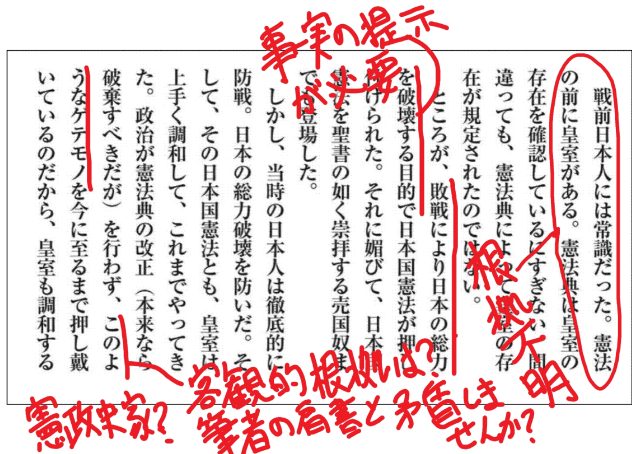 事実の提示
が必要
戦前日本人には常識だった。憲法
の前に皇室がある。憲法典は皇室の
存在を確認しているにすぎない。間
違っても、憲法典によって皇室の存
在が規定されたのではない。
ところが、敗戦により日本の総力
を破壊する目的で日本国憲法が押し
付けられた。それに媚びて、日本国
憲法を聖書の如く崇拝する売国奴ま
でも登場した。
しかし、当時の日本人は徹底的に
防戦。日本の総力破壊を防いだ。そ
して、その日本国憲法とも、皇室は
上手く調和して、これまでやってき
た。政治が憲法典の改正（本来なら
破棄すべきだが）を行わず、このよ
うなゲテモノを今に至るまで押し戴
いているのだから、皇室も調和する
根拠不明
憲政史家?
客観的根拠は?
筆者の肩書と矛盾しま
せんか?